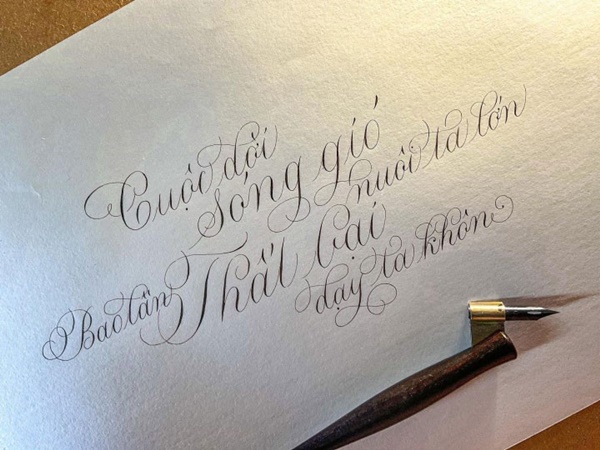 Cuộc đời
sóng gió
nuôi ta lớn
Bao lần
Thất bại
dạy ta khôn